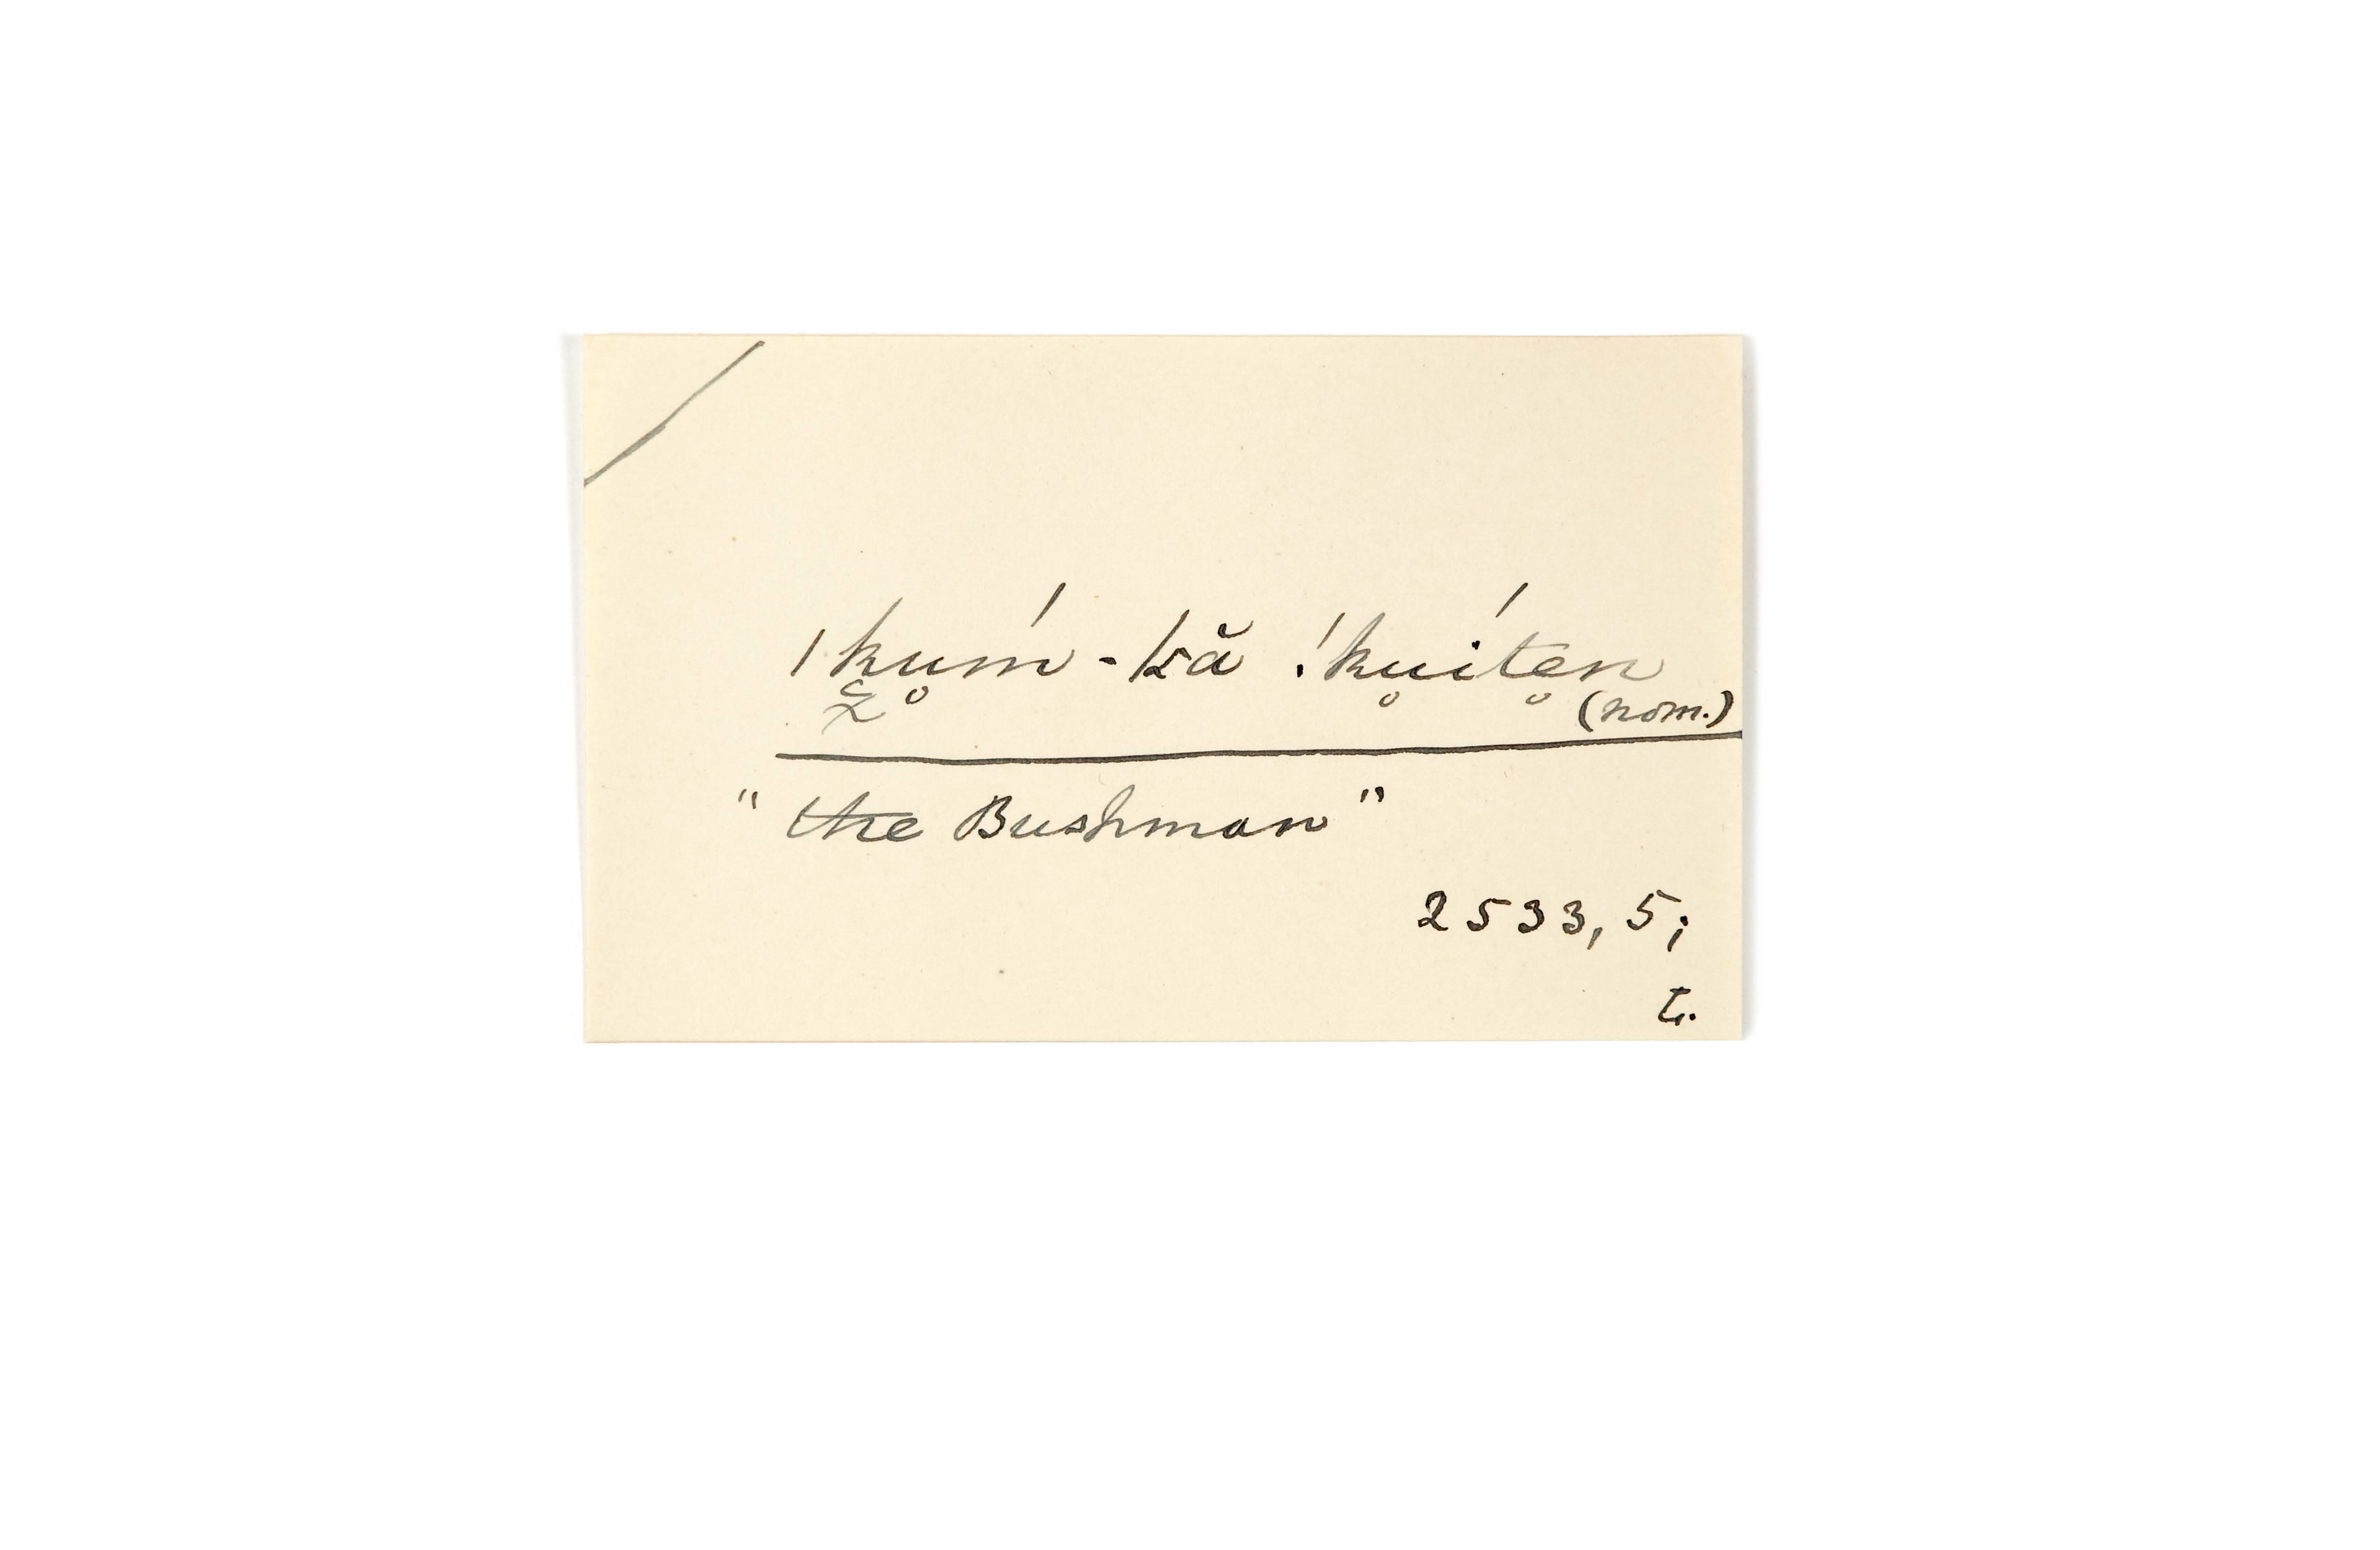 ǀku̥ḿ-kă ǃku̥ít̥en
(nom.)
" the Bushman "
2533, 5;
t.